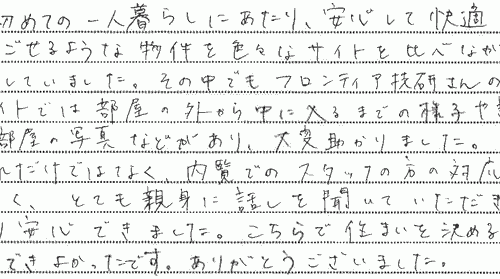 初めての一人暮らしにあたり、安心して快適
ごせるような物件を色々なサイトを比べなが
していました。その中でもフロンティア技研さんの
イトでは部屋の外から中に入るまでの様子や
部屋の写真などがあり、大変助かりました。
ただけではなく、内覧でのスタッフの方の対応
く、とても親身に話しを聞いていただき
り安心できました。こちらで住まいを決める
できよかったです。ありがとうございました。